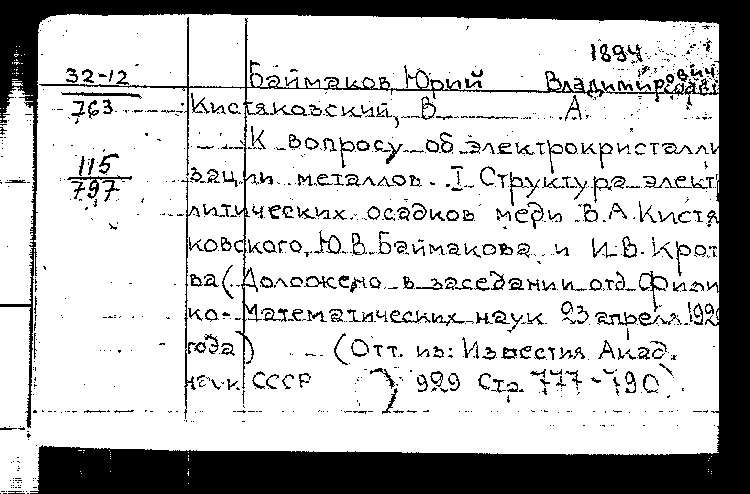 1894
32-12 Баймаков Юрий Владимирович
763 Кистяковский, В А.
К вопросу об электрокристалли
115 зации металлов. I Структура элект
797 литических осадков меди В.А.Кистя
ковского, Ю.В.Баймакова и И.В.Крот
ва (Доложено в заседании отд Физи
ко-Математических наук 23 апреля 192
года) (Отт. из: Известия Акад.
наук СССР ) 929 Стр 777-790).